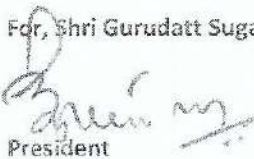 For, Shri Gurudatt Suga
President